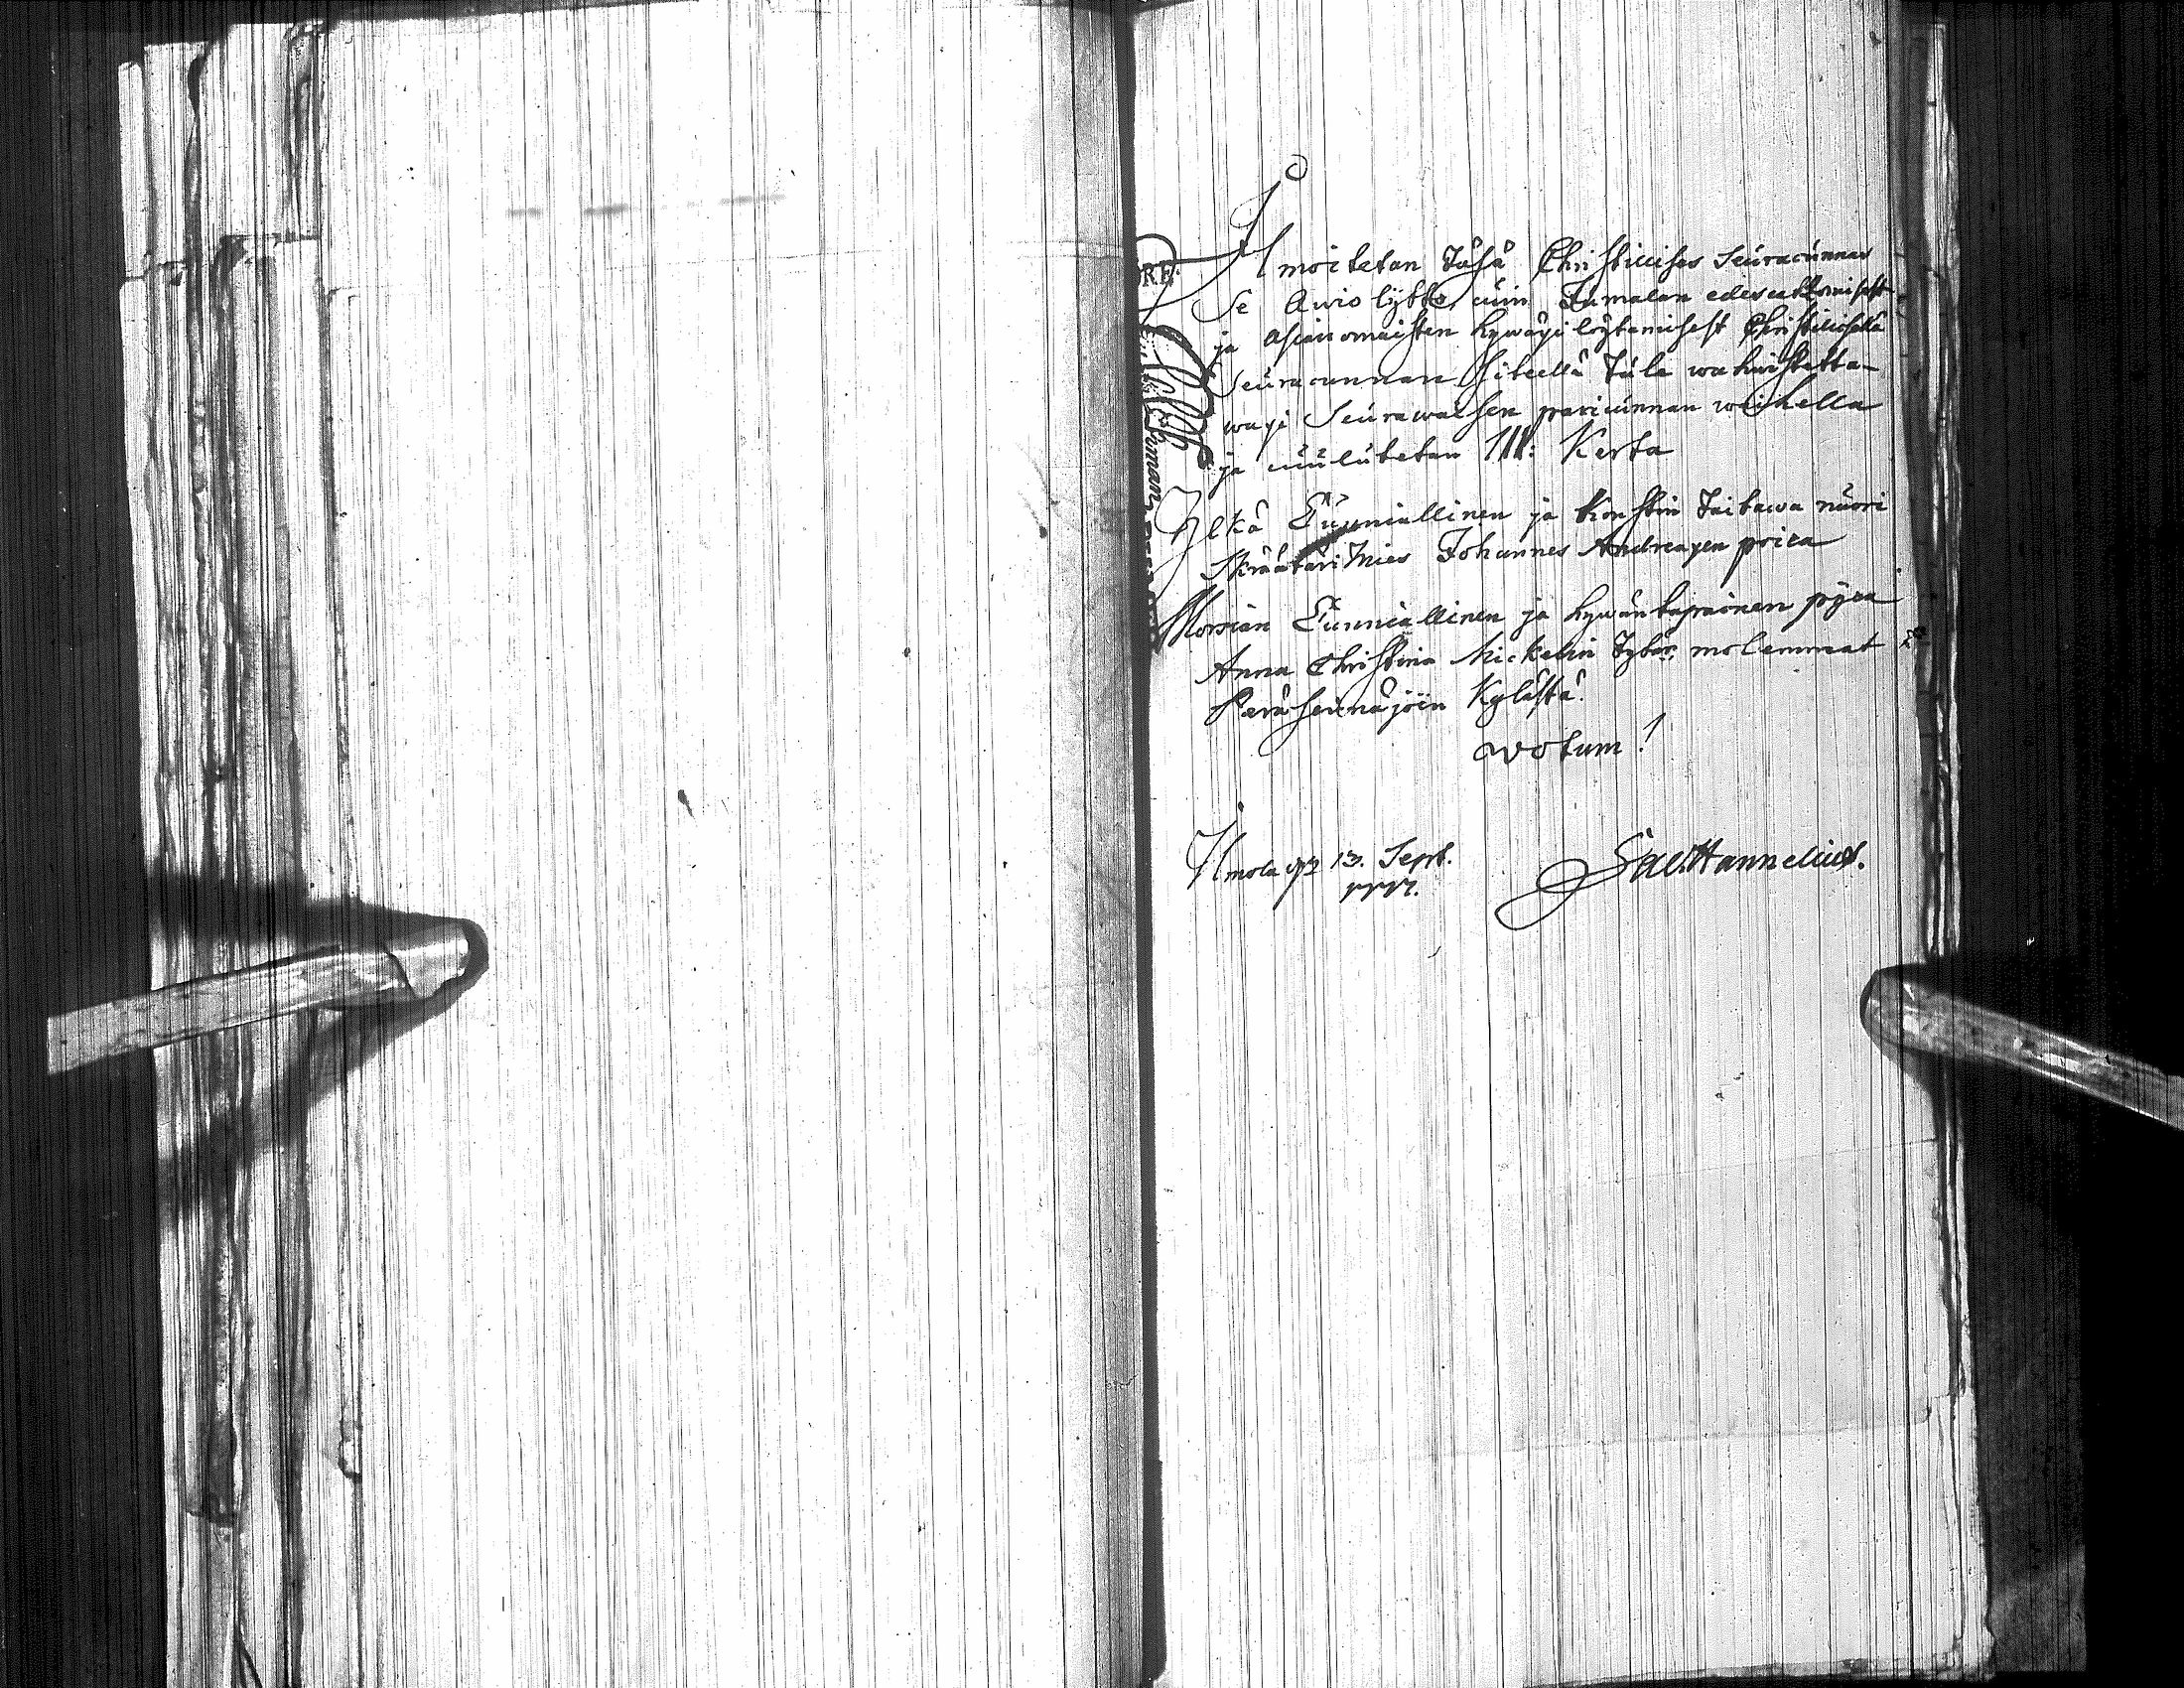 Ilmoitetan täsä Christillises Seuracunnas
Se Awio lijtto, cuin Jumalan edescattomisest
ja asianomaisten hywäxi löytämisest Christilisellä
Seuracunnan siteellä tule wahwistetta-
waxi Seurawaisen paricunnan waihella
ja cuulutetan III: Kerta
Ylkä Cunniallinen ja Konstin taitawa nuori
Skräätäri Mies Johannes Andreaxen poica
Morsian Cunniallinen ja hywäntapainen pijca
Anna Christina Mickelin tytär, molemmat
Peräseinäjoin Kylästä.
votum!
Ilmola 13. Sept.
Hannelius.
ORE